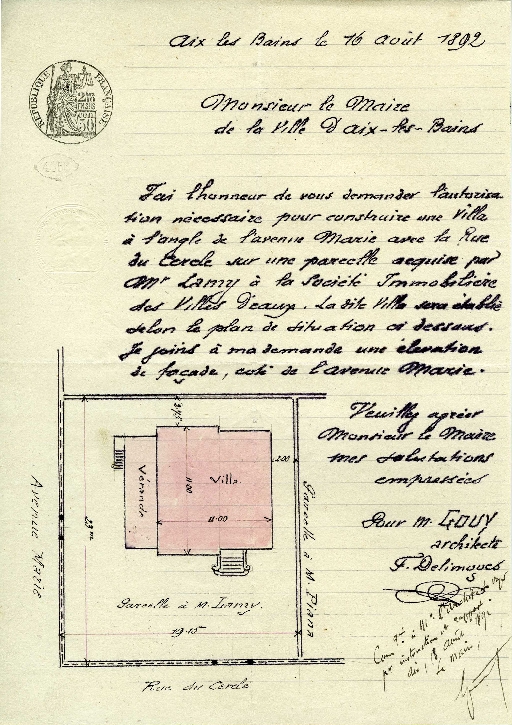 Aix les Bains le 16 août 1892
RÉPUBLIQUE FRANÇAISE
Monsieur le Maire
de la Ville d'Aix-les-Bains
J'ai l'honneur de vous demander l'autorisa
tion nécessaire pour construire une Villa
à l'angle de l'avenue Marie avec la Rue
du Cercle sur une parcelle acquise par
Mr Lamy à la Société Immobilière
des Villes d'eaux. La dite Villa sera établie
selon le plan de situation ci dessous.
Je joins à ma demande une élévation
de façade, coté de l'avenue Marie.
Veuillez agréer
Monsieur le Maire
mes salutations
empressées
Pour M. GOUY
architecte
F. Delimoges
Véranda
Villa
11.00
11.00
2.00
Avenue Marie
Parcelle à M. Piana
Parcelle à M. Lamy.
19.15
Rue du Cercle
le Maire